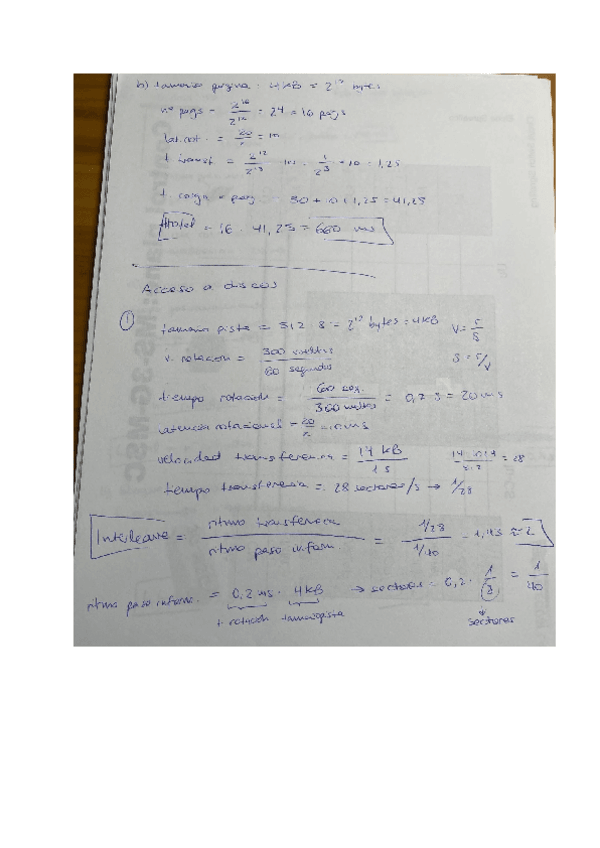 b) tamaño pagina = 4KB = 2^12 bytes
nº pags = 2^16/2^12 = 24 = 16 pags
lat. rot. = 20/2 = 10
t transf = 2^12/2^15 · 10 = 1/2^3 · 10 = 1,25
t. carga = pag = 30 + 10 + 1,25 = 41,25
ttotal = 16 · 41,25 = 660 ms
Acceso a discos
① tamaño pista = 512 · 8 = 2^12 bytes = 4KB
v. rotacion = 300 vueltas / 60 segundos
tiempo rotación = 60 seg. / 300 vueltas = 0,2 s = 20 ms
latencia rotacional = 20/2 = 10 ms
velocidad transferencia = 14 KB / 1 s
tiempo transferencia = 28 sectores/s → 1/28
Interleave = ritmo transferencia / ritmo paso inform. = 1/28 / 1/40 = 1,43 ≈ 2
ritmo paso inform. = 0,2 ms · 4KB → sectores = 0,2 · 1/8 = 1/40
t. rotación tamaño pista
sectores